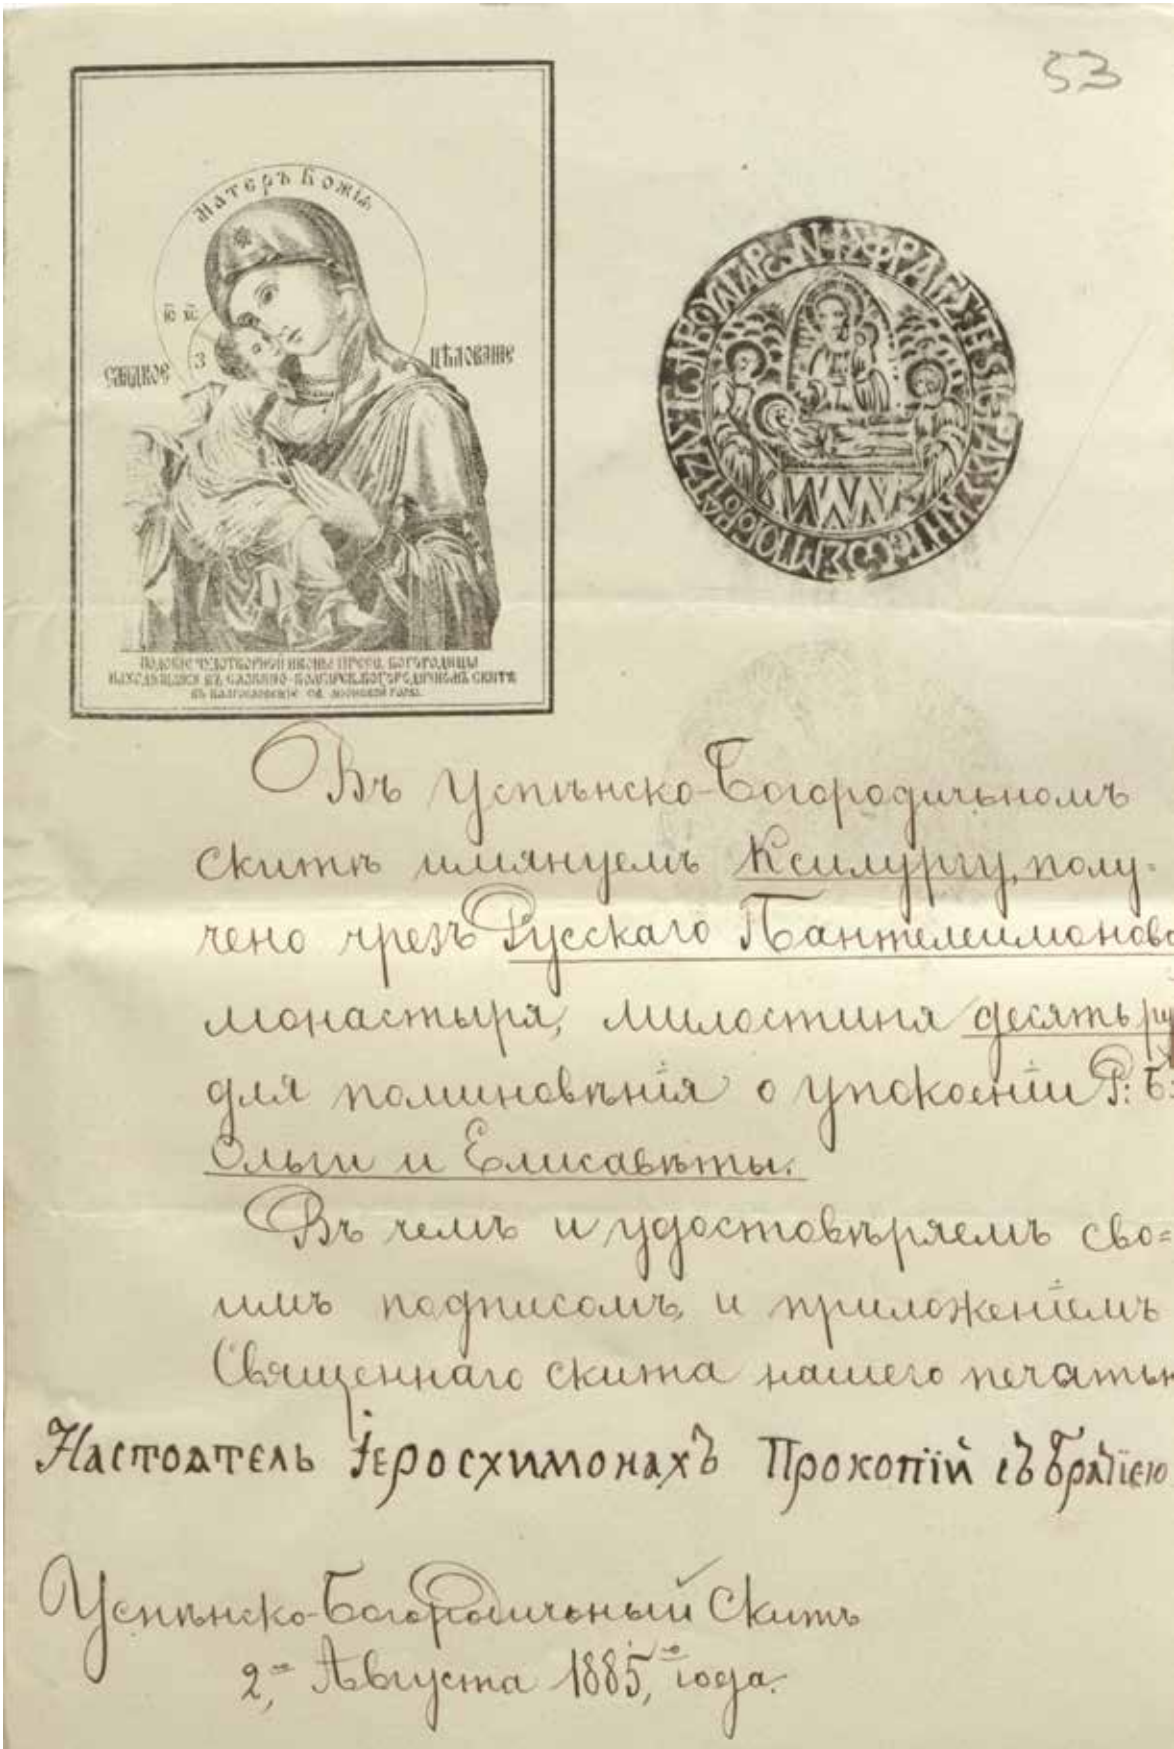 53
Матерь Божія
І҃С Х҃С
Сладкое Цѣлованіе
ПОДОБІЕ ЧУДОТВОРНОЙ ИКОНЫ ПРЕСВ. БОГОРОДИЦЫ
НАХОДЯЩАЯСЯ ВЪ СЛАВЯНО-БОЛГАРСК. БОГОРОДИЧНОМЪ СКИТѢ
ВЪ БЛАГОСЛОВЕНІЕ СВ. АѲОНСКОЙ ГОРЫ.
Въ Успѣнско-Богородичьномъ
Скитѣ имянуемъ Ксилургу, полу-
чено чрезъ Русскаго Пантелеимоновс
монастыря, милостиня десять ру
для поминовѣнія о упокоеніи Р: Б:
Ольги и Елисавѣты.
Въ чемъ и удостовѣряемъ сво=
имъ подписомъ, и приложеніемъ
Священнаго скита нашего печатью
Настоятель Іеросхимонахъ Прокопій съ братіею
Успѣнско-Богородичьный Скитъ
2, Августа 1885, го года.